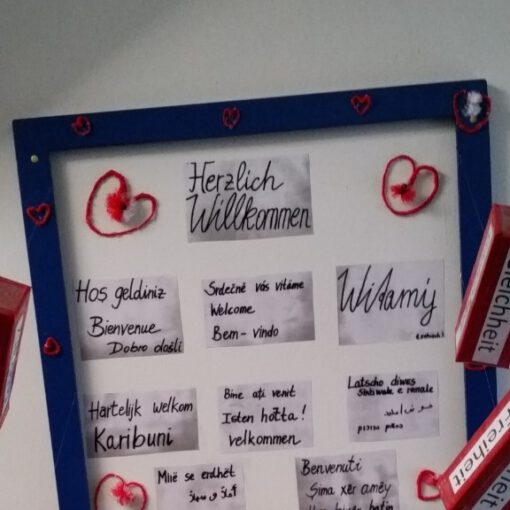 Herzlich
Willkommen
Hoş geldiniz
Bienvenue
Dobro došli
Srdečně vás vítáme
Welcome
Bem-vindo
Witamy
Hartelijk welkom
Karibuni
Bine ați venit
Isten hotta!
velkommen
Latscho diwes
خوش آمدید
Mirë se erdhët
Benvenuti
Sima xêr amêy
Gleichheit
Freiheit